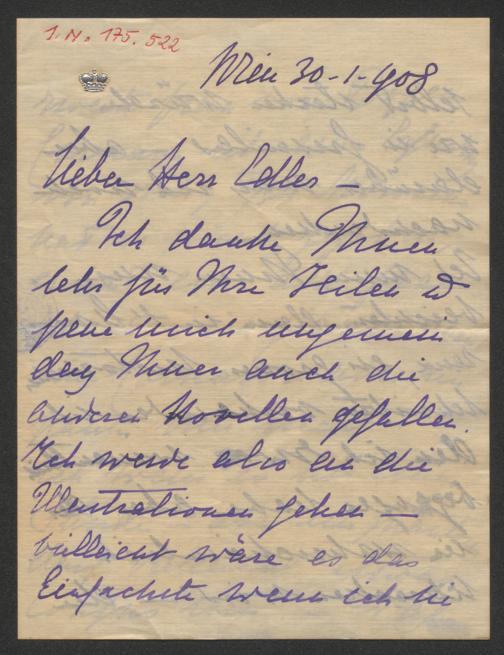 I.N. 175.522
Wien 30-1-908
Lieber Herr Edler –
Ich danke Ihnen
sehr für Ihre Zeilen u
freue mich ungemein
daß Ihnen auch die
anderen Novellen gefallen.
Ich werde also an die
Illustrationen gehen –
vielleicht wäre es das
Einfachste wenn ich sie